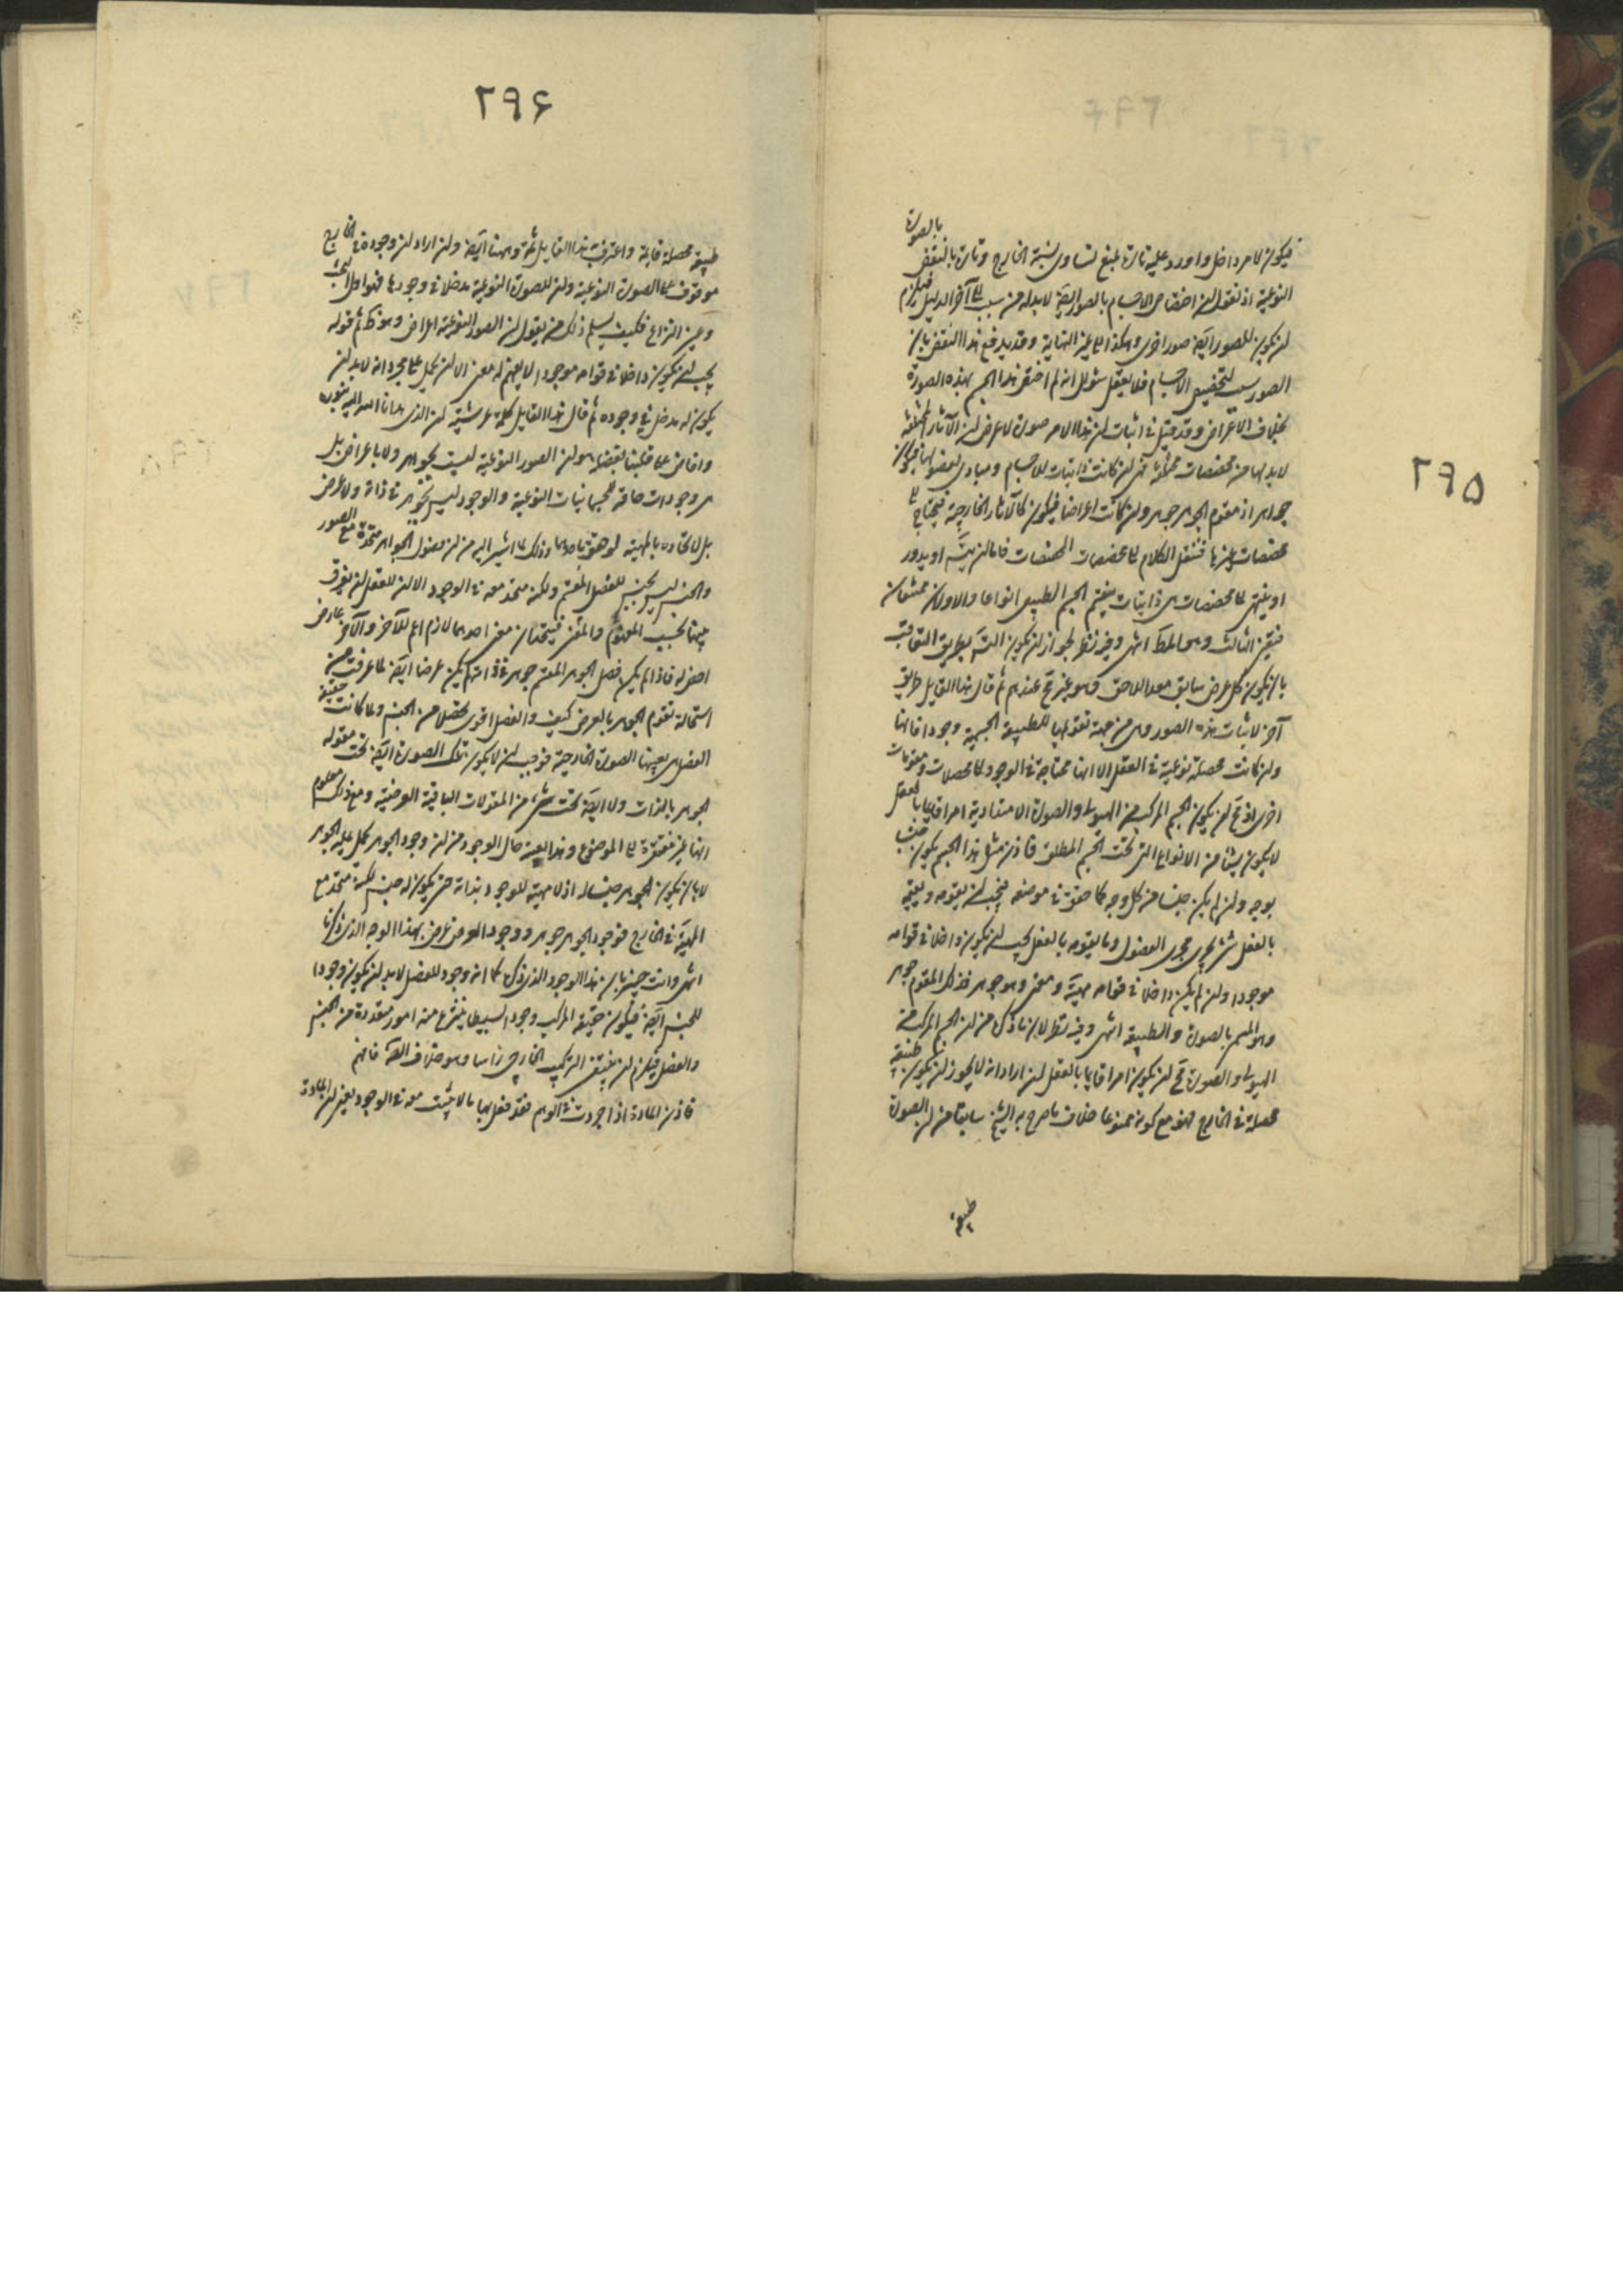 ۲۹۵
فیکون لامر داخل واورد علیه تارة بمنع تساوی نسبة الخارج وتارة بالنقض بالصورة
النوعیة اذ نقول ان اختصاص الاجسام بالصور ایضا لابد له من سبب الی آخر الدلیل فیلزم
ان یکون للصور ایضا صور اخری وهکذا الی غیر النهایة وقد یدفع هذا النقض بان
الصور سبب لتخصیص الاجسام فلا یعقل سؤال انه لم اختص هذا الجسم بهذه الصورة
بخلاف الاعراض وقد قیل فی اثبات ان هذا الامر صورة لا عرض ان الآثار المختلفة
لابد لها من مخصصات مختلفة فهی ان کانت ذاتیات للاجسام ومبادی لفصولها فیکون
جواهر اذ مقوم الجوهر جوهر وان کانت اعراضا فیکون کالآثار الخارجیة فیحتاج الی
مخصصات غیرها فننقل الکلام الی مخصصات المخصصات فاما ان یتسـ او یدور
او ینتهی الی مخصصات هی ذاتیات ینقسم الجسم الطبیعی انواعا والاولان ممتنعان
فتعین الثالث وهو المط انتهی وفیه نظر لجواز ان یکون التسـ بطریق التعاقب
بان یکون کل عرض سابق معدا للاحق وهو غیر مح عندهم ثم قال هذا القایل طریق
آخر لاثبات هذه الصور وهی من جهة تقویمها للطبیعة الجسمیة وجودا فانها
وان کانت محصلة نوعیة فی العقل الا انها محتاجة فی الوجود الی محصلات ومقومات
اخری اذ مح ان یکون الجسم المرکب من الهیولی والصورة الامتدادیة امرا قایما بالفعل
لا یکون شیئا من الانواع التی تحت الجسم المطلق فاذن مثل هذا الجسم یکون جنسا
بوجه وان لم یکن جنسا من کل وجه کما حقق فی موضعه فیجب ان یقومه ویقیمه
بالفعل شیء یجری مجری الفصول وما یقومه بالفعل یجب ان یکون داخلا فی قوامه
موجودا وان لم یکن داخلا فی قوامه مهیة ومعنی وهو جوهر فذلک المقوم جوهر
وهو المسمی بالصورة والطبیعة انتهی وفیه نظر لان ما ذکره من ان الجسم المرکب من
الهیولی والصورة مح ان یکون امرا قایما بالفعل ان اراد انه لا یجوز ان یکون طبیعة
محصلة فی الخارج فهو مع کونه ممنوعا خلاف ما صرح به الشیخ سابقا من ان الصورة
طبیعة
۲۹۶
طبیعة محصلة قایمة واعترف به هذا القایل ثمة وههنا ایضا وان اراد ان وجوده فی الخارج
موقوف علی الصورة النوعیة وان للصورة النوعیة مدخلا فی وجودها فهو اول البحث
وعین النزاع فکیف یسلم ذلک من یقول ان الصور النوعیة اعراض وهو کـ ثم قوله
یجب ان یکون داخلا فی قوامه موجودا لا یفهم له معنی الا ان یحمل علی مجرد انه لابد ان
یکون له مدخل فی وجوده ثم قال هذا القایل کلمة عرشیة ان الذی هدانا الله الیه بنوره
وافاض علی قلبنا بفضله هو ان الصور النوعیة لیست بجواهر ولا باعراض بل
هی وجودات خاصة للجسمانیات النوعیة والوجود لیس بجوهر فی ذاته ولا عرض
بل لاتحاده بالمهیة لوحظ باحدهما وذلک لما اشیر الیه من ان فصول الجواهر متحدة مع الصور
والجنس لیس بجنس للفصل المقسم ولکنه متحد معه فی الوجود الا ان للعقل ان یفرق
بینهما بحسب المفهوم والمعنی فیتحدان معنی احدهما لازم اعم للآخر والآخر عارض
اخص له فاذا لم یکن فصل الجوهر المقسم جوهرا فی ذاته لم یکن عرضا ایضا لما عرفت من
استحالة تقوم الجوهر بالعرض کیف والفصل اقوی تحصلا من الجنس ولما کانت حقیقة
الفصل هی بعینها الصورة الخارجیة فوجب ان لا یکون تلک الصورة ایضا تحت مقولة
الجوهر بالذات ولا ایضا تحت شیء من المقولات الباقیة العرضیة ومع ذلک معلوم
انها غیر مفتقرة الی الموضوع وهذا بعینه حال الوجود من ان وجود الجوهر یحمل علیه الجوهر
لا بان یکون الجوهر جنسا له اذ لا مهیة للوجود بذاته حتی یکون له جنس لکنه متحد مع
المهیة فی الخارج فوجود الجوهر جوهر ووجود العرض عرض بهذا الوجه الذی ذکرنا
انتهی وانت خبیر بان هذا الوجود الذی ذکره کما انه وجود للفصل لابد ان یکون وجودا
للجنس ایضا فیکون حقیقة المرکب وجودا بسیطا ینتزع منه امور متعددة من الجنس
والفصل فیلزم ان ینتفی الترکیب الخارجی راسا وهو خلاف الفرض فافهم
فاذن المادة اذا جردت فی الوهم فقد فعل بها ما لا یثبت معه فی الوجود یعنی ان المادة